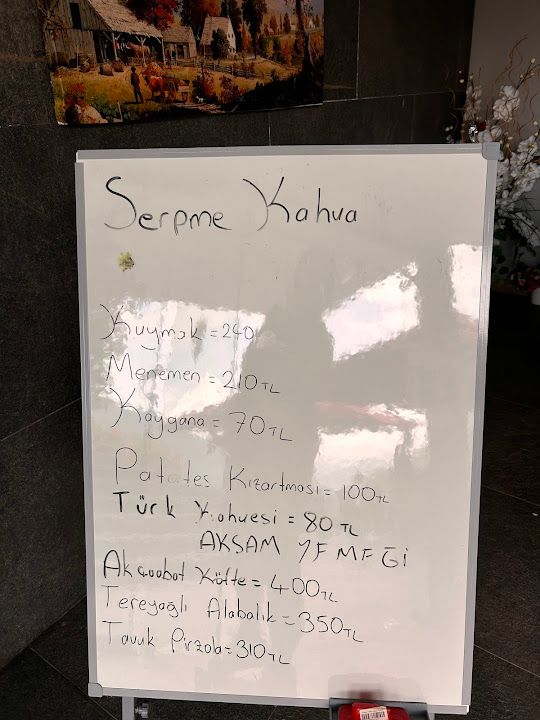 Serpme Kahva
Kuymak = 240
Menemen = 210 TL
Kaygana = 70 TL
Patates Kızartması = 100 TL
Türk Kahvesi = 80 TL
AKSAM YEMEGİ
Akçaabat Köfte = 400 TL
Tereyağlı Alabalık = 350 TL
Tavuk Pirzola = 310 TL